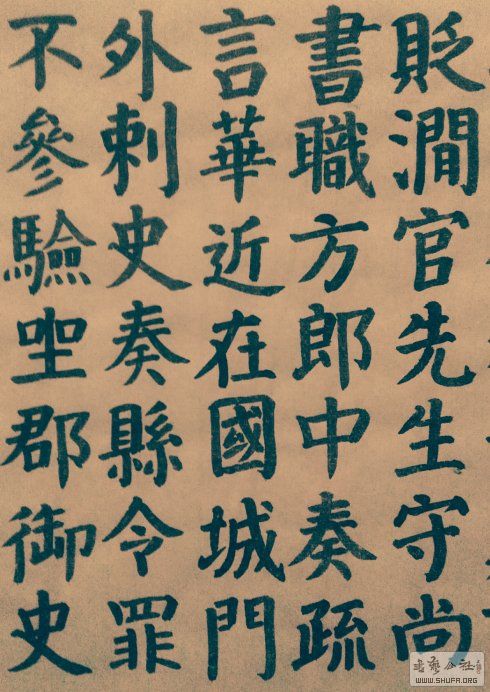 貶澗官先生守尚
書職方郎中奏疏
言華近在國城門
外刺史奏縣令罪
不參驗坐郡御史
書藝公社
WWW.SHUFA.ORG